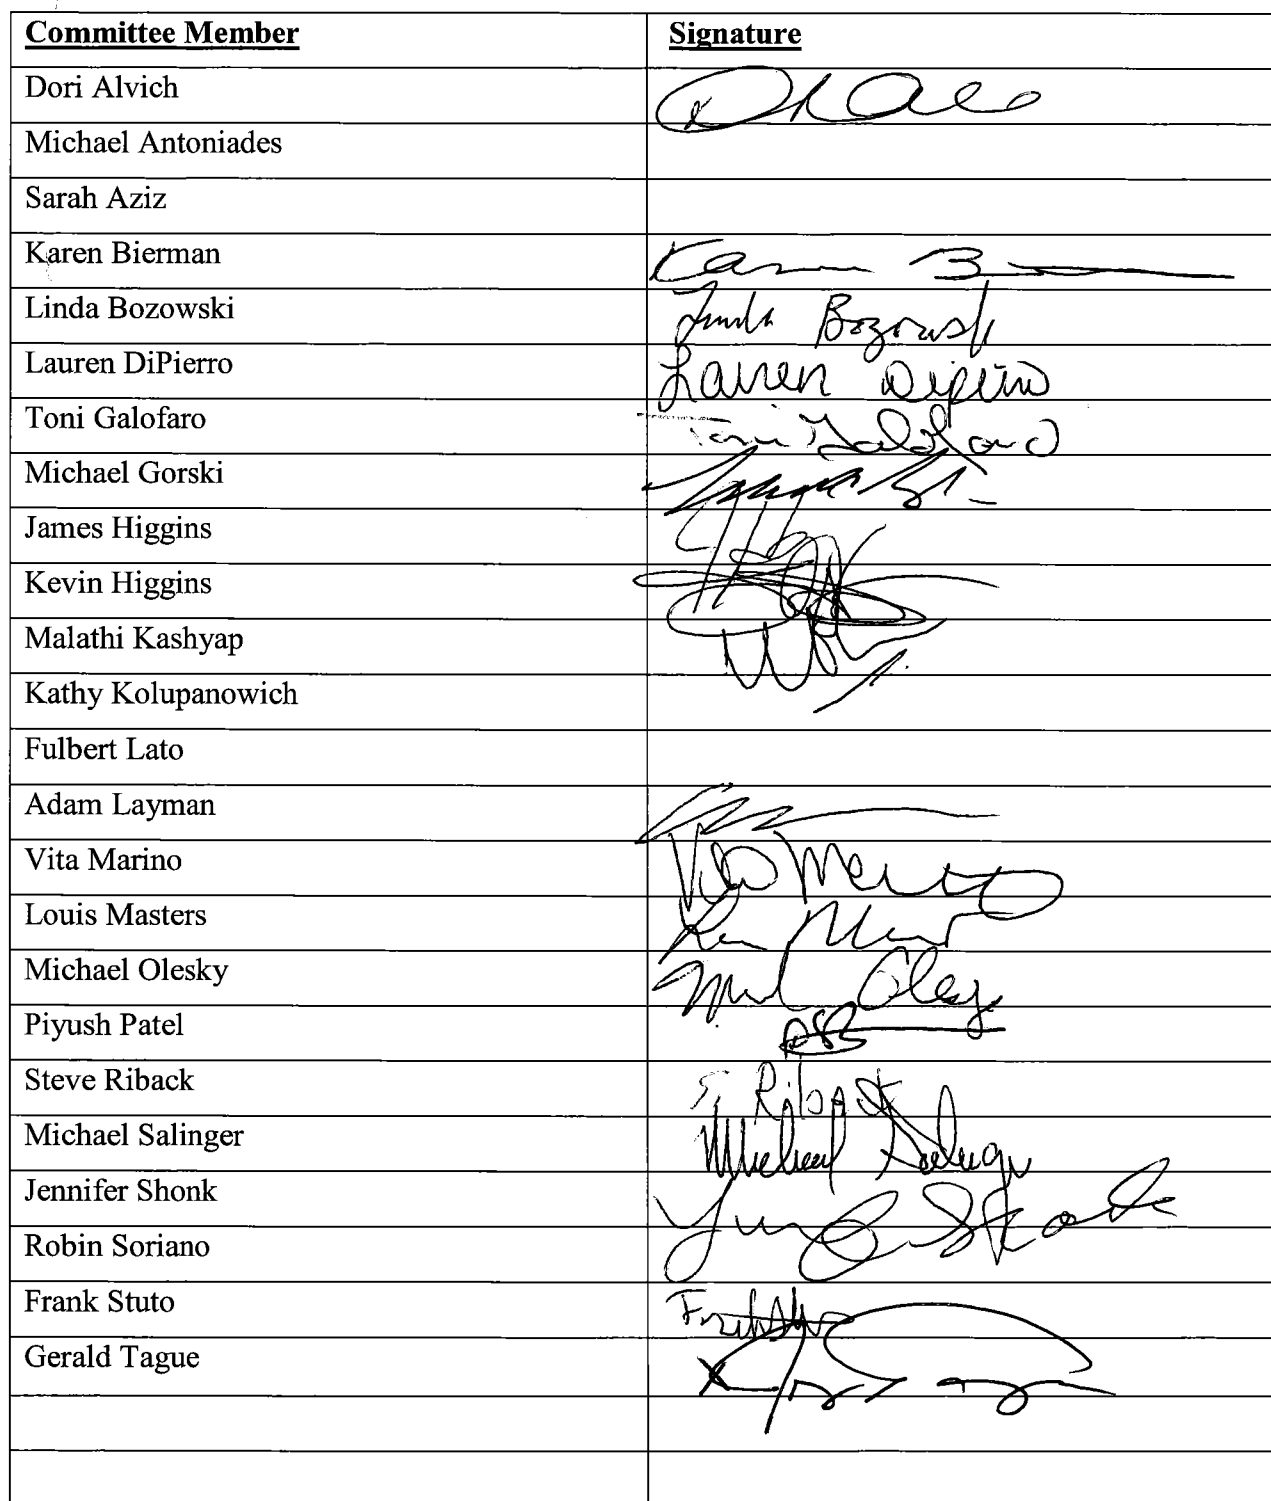 Committee Member Signature
Dori Alvich
Michael Antoniades
Sarah Aziz
Karen Bierman Karen B
Linda Bozowski Linda Bozowski
Lauren DiPierro Lauren DiPierro
Toni Galofaro Toni Galofaro
Michael Gorski
James Higgins
Kevin Higgins
Malathi Kashyap
Kathy Kolupanowich
Fulbert Lato
Adam Layman
Vita Marino Vita Marino
Louis Masters
Michael Olesky
Piyush Patel
Steve Riback S. Riback
Michael Salinger Michael Salinger
Jennifer Shonk
Robin Soriano
Frank Stuto
Gerald Tague